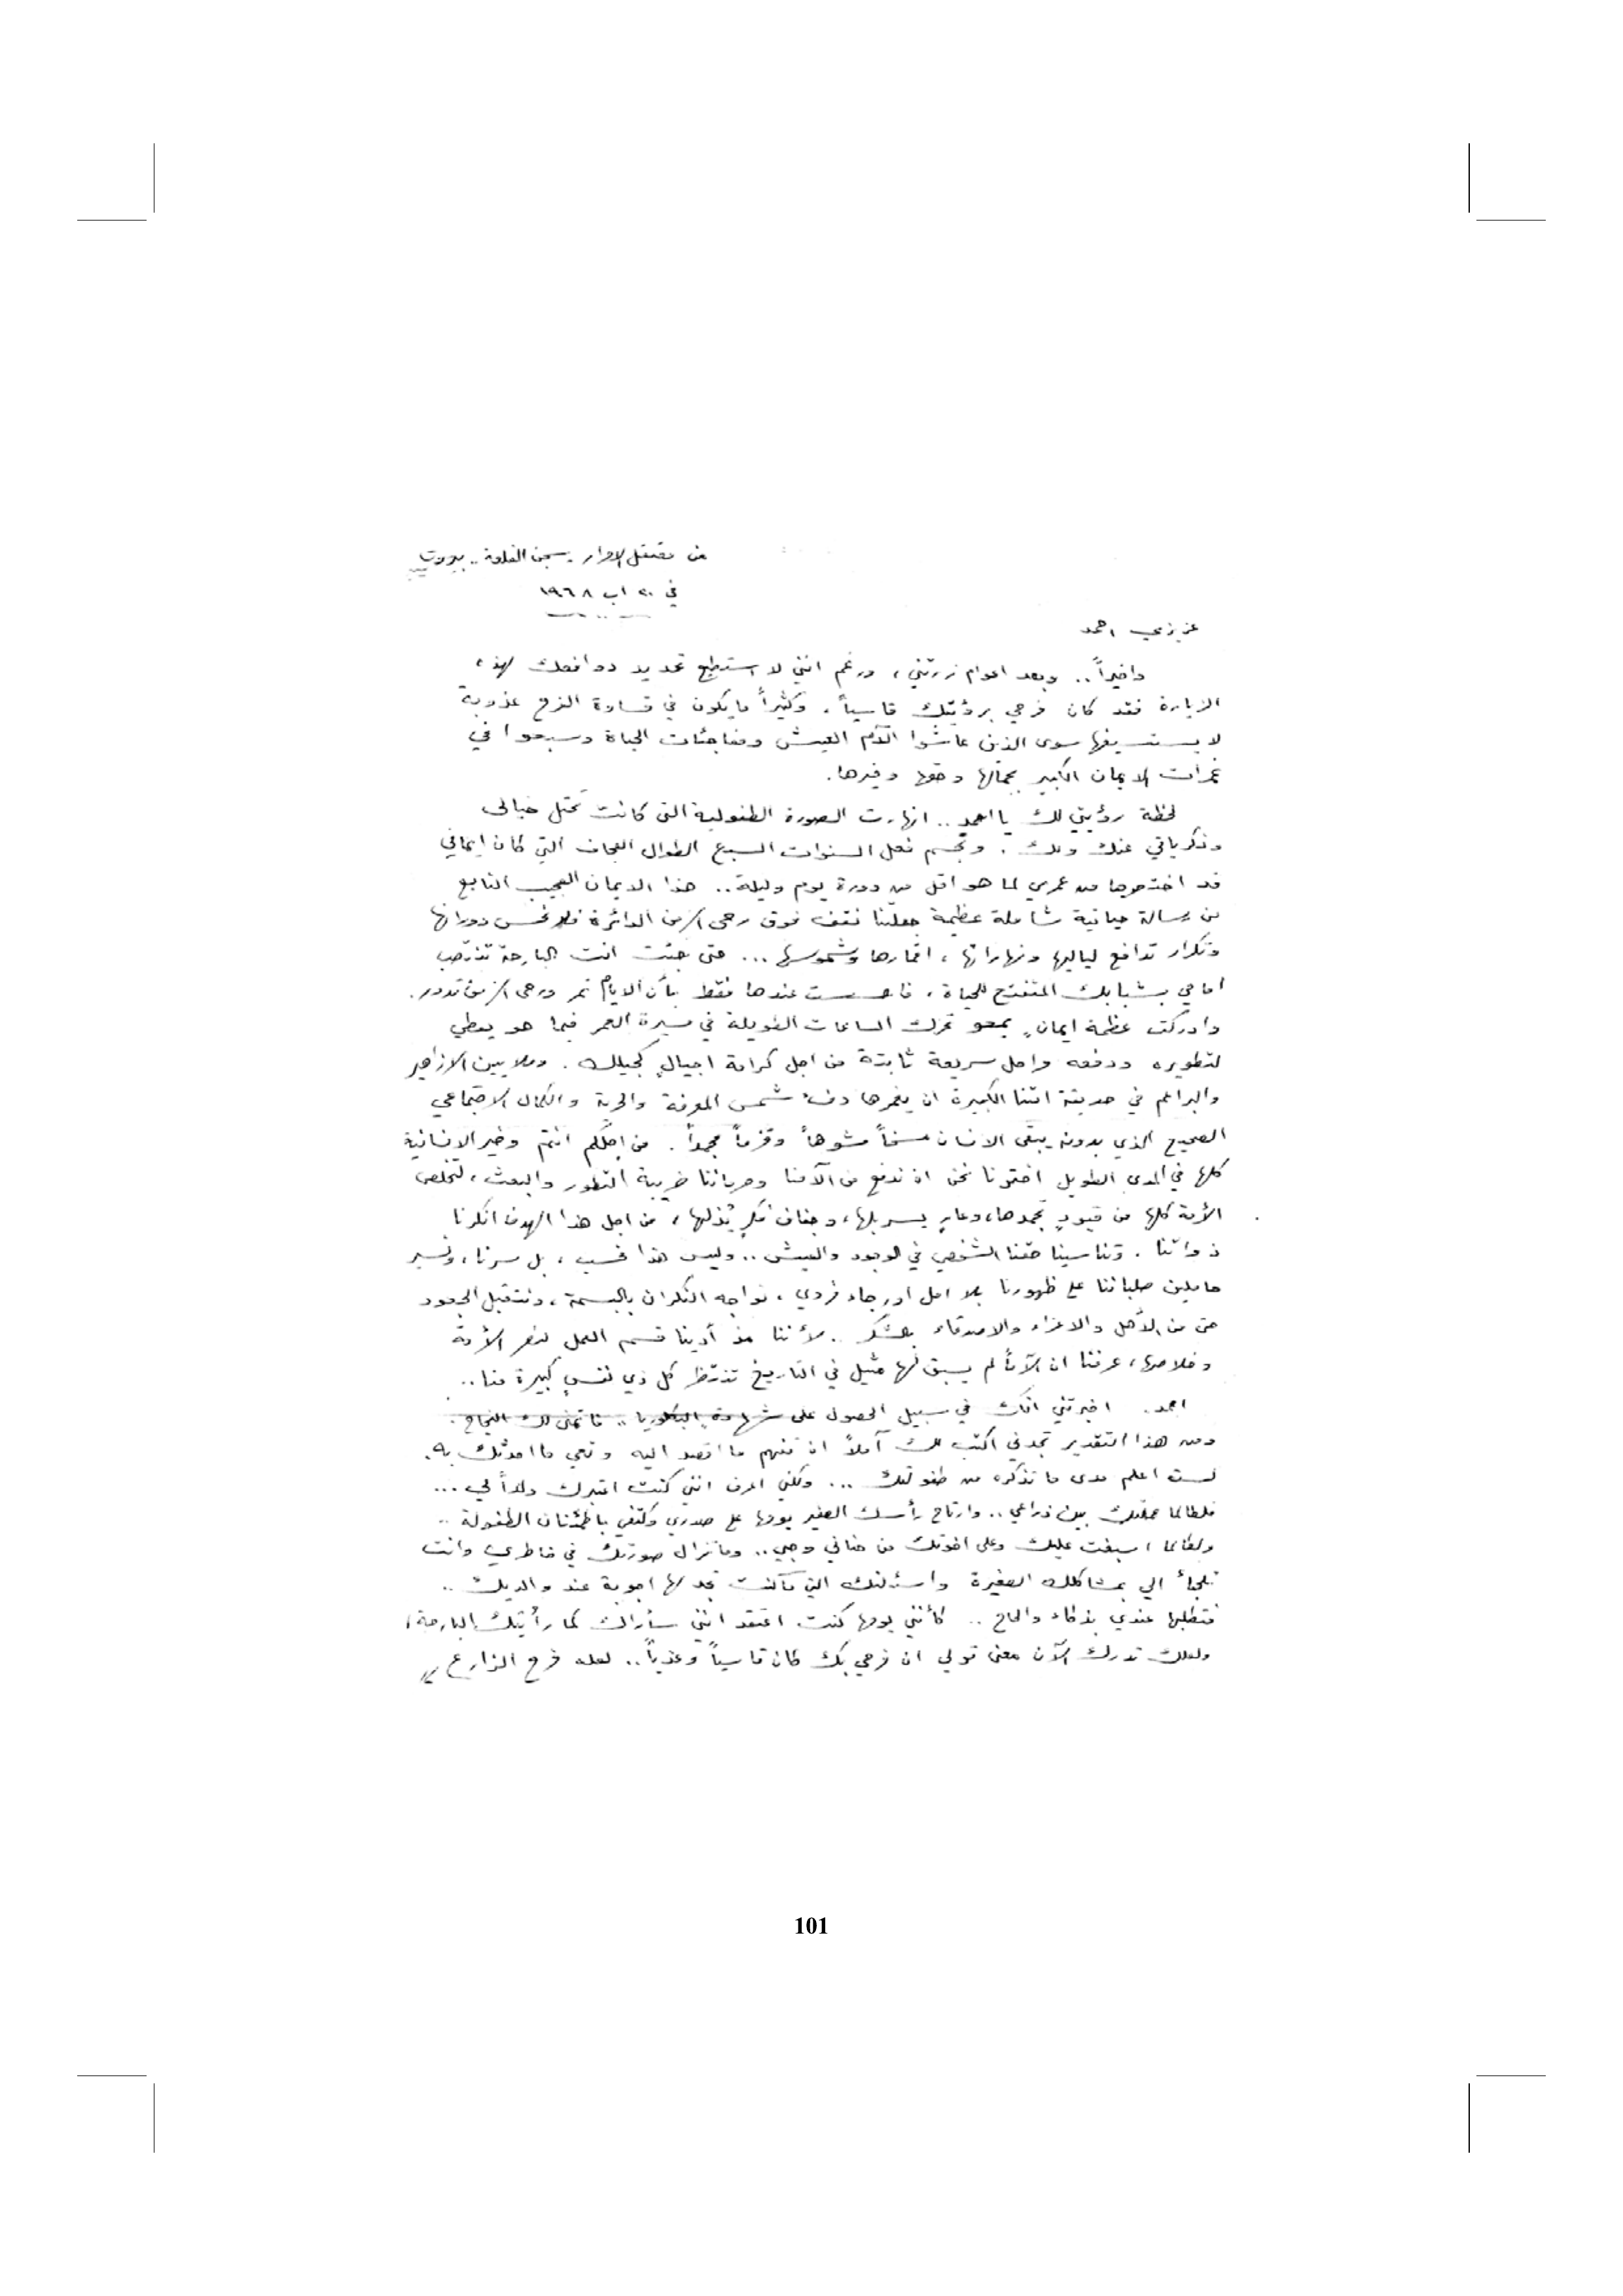 من معتقل الاحرار - سجن القلعة .. بيروت
في ٢٠ اب ١٩٦٨
عزيزي احمد
واخيراً .. وبعد اعوام زرتني ، ورغم انني لا استطيع تحديد دوافعك لهذه
الزيارة فقد كان فرحي برؤيتك قاسياً ، وكثيراً ما يكون في قساوة الفرح عذوبة
لا يستسيغها سوى الذين عاشوا آلام العيش ومفاجئات الحياة وسبحوا في
غمرات الايمان الكبير بجمالها وحقها وخيرها .
لحظة رؤيتي لك يا احمد .. انهارت الصورة الطفولية التي كانت تحتل خيالي
وذكرياتي عنك ولك . وتجسم فعل السنوات السبع الطوال العجاف التي كان ايماني
قد اختصرها من عمري لما هو اقل من دورة يوم وليلة .. هذا الايمان العجيب النابع
من رسالة حياتية شاملة عظيمة جعلتنا نقف فوق رحى الزمن الدائرة فلا نحس دورانها
وتكرار تدافع لياليها ونهاراتها ، اقمارها وشموسها ... حتى جئت انت البارحة تنتصب
امامي بشبابك المتفتح للحياة ، فاحسست عندها فقط بأن الايام تمر ورحى الزمن تدور .
وادركت عظمة ايمانٍ يمحو تحرك الساعات الطويلة في مسيرة العمر فيما هو يعطي
لتطويره ودفعه مراحل سريعة ثابتة من اجل كرامة اجيالٍ كجيلك . وملايين الازاهير
والبراعم في حديقة امتنا الكبيرة ان يغمرها دفء شمس المعرفة والحرية والكمال الاجتماعي
الصحيح الذي بدونه يبقى الانسان مسخاً مشوهاً وقزماً مجمداً . من اجلكم انتم وخير الانسانية
كلها في المدى الطويل اخترنا نحن ان ندفع من آلامنا وحرياتنا ضريبة التطور والبعث ، لتخلص
الأمة كلها من قيودٍ تجمدها ، وعارٍ يسربلها ، وجفاف فكرٍ يُذلها ، من اجل هذا الهدف انكرنا
ذواتنا . وتناسينا حقنا الشخصي في الوجود والعيش .. وليس هذا فحسب ، بل سرنا ، ونسير
حاملين صلباننا على ظهورنا بلا امل او رجاء فردي ، نواجه النكران بالبسمة ، ونتقبل الجحود
حتى من الأهل والاعزاء والاصدقاء بالشكر .. لأننا مذ أدينا قسم العمل لنصر الأمة
وخلاصها ، عرفنا ان آلآماً لم يسبق لها مثيل في التاريخ تنتظر كل ذي نفسٍ كبيرة منا ..
احمد . اخبرتني انك في سبيل الحصول على شهادة البكلوريا .. فاتمنى لك النجاح .
ومن هذا التقدير تجدني اكتب لك آملاً ان تفهم ما اقصد اليه وتعي ما احدثك به .
لست اعلم مدى ما تذكره من طفولتك ... ولكني اعرف انني كنت اعتبرك ولداً لي ...
فلطالما حملتك بين ذراعي .. وارتاح رأسك الصغير يومها على صدري وكتفي باطمئنان الطفولة ..
ولطالما اسبغت عليك وعلى اخوتك من حناني وحبي .. وما تزال صورتك في خاطري وانت
تلجأ الي بمشاكلك الصغيرة واسئلتك التي ما كنت تجد لها اجوبة عند والديك ..
فتطلبها عندي بذكاء والحاح .. كأنني يومها كنت اعتقد انني سأراك كما رأيتك البارحة ،
ولعلك تدرك الآن معنى قولي ان فرحي بك كان قاسياً وعذباً .. لعله فرح الزارع
101